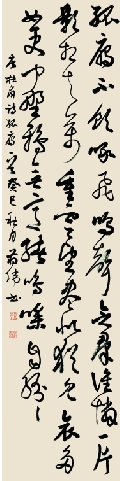 孤雁不飲啄飛鳴聲念群誰憐一片
影相失萬重雲望盡似猶見哀多
如更聞野鴉無意緒鳴噪自紛々
唐杜甫詩孤雁 癸巳秋月 书